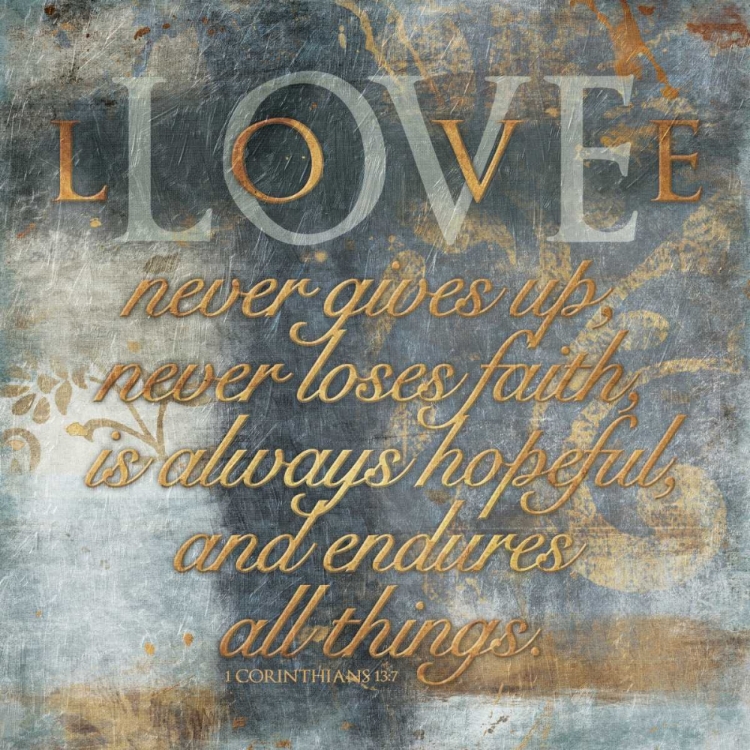 LOVE
L O V E
never gives up,
never loses faith,
is always hopeful,
and endures
all things.
1 CORINTHIANS 13:7